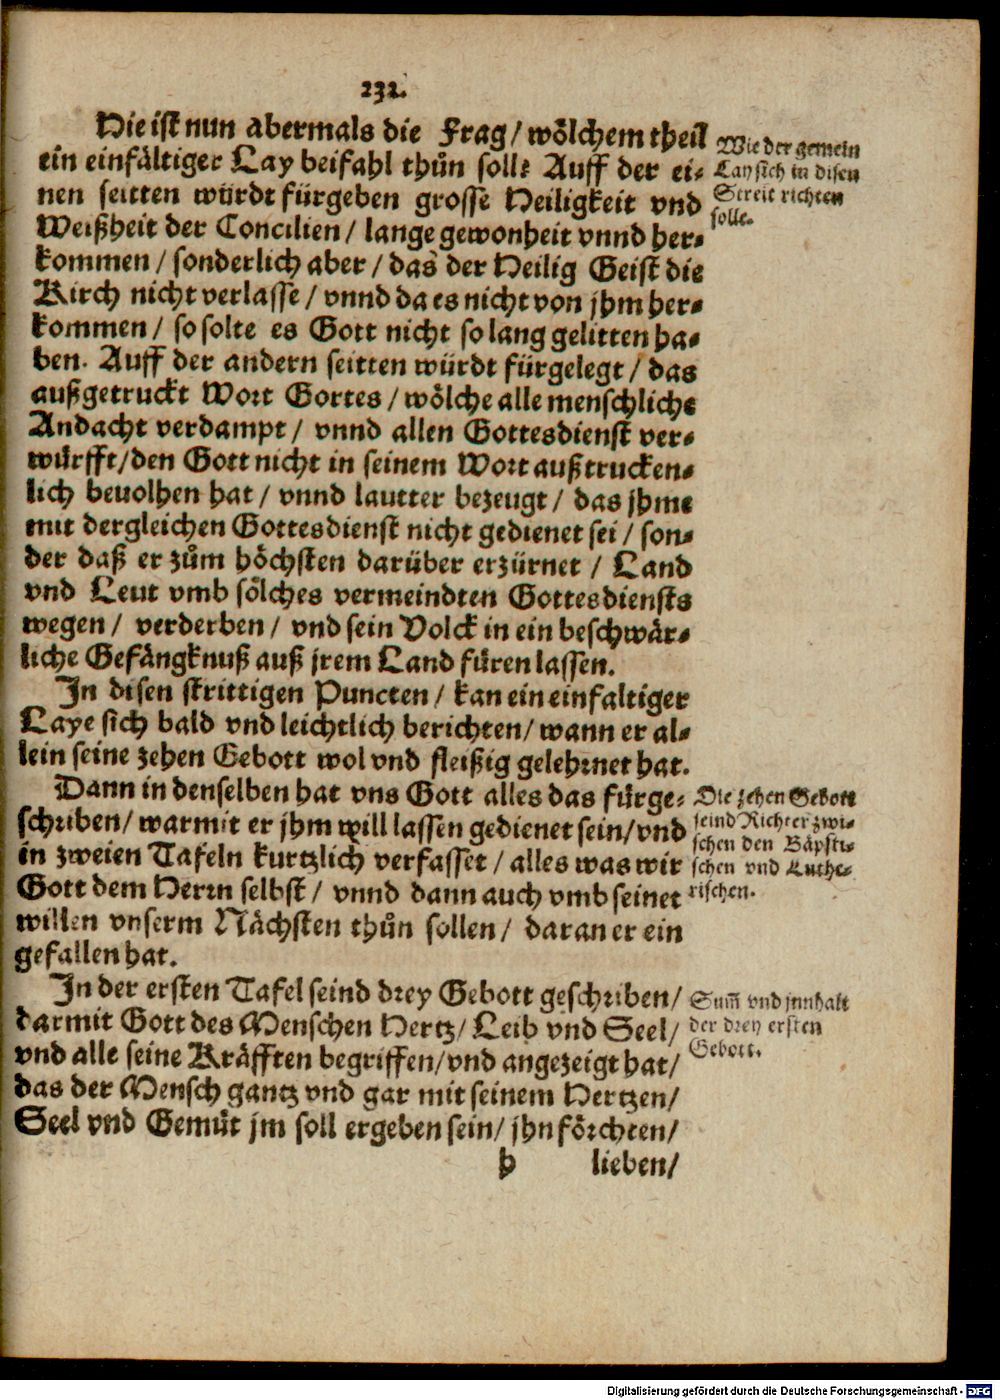 232.
Hie ist nun abermals die Frag/ wölchem theil
ein einfältiger Lay beifahl thůn soll? Auff der ei-
nen seitten würdt fürgeben grosse Heiligkeit vnd
Weißheit der Concilien/ lange gewonheit vnnd her-
kommen/ sonderlich aber/ das der Heilig Geist die
Kirch nicht verlasse/ vnnd da es nicht von jhm her-
kommen/ so solte es Gott nicht so lang gelitten ha-
ben. Auff der andern seitten würdt fürgelegt/ das
außgetruckt Wort Gottes/ wölche alle menschliche
Andacht verdampt/ vnnd allen Gottesdienst ver-
würfft/ den Gott nicht in seinem Wort außtrucken-
lich beuolhen hat/ vnnd lautter bezeugt/ das jhme
mit dergleichen Gottesdienst nicht gedienet sei/ son-
der daß er zům höchsten darüber erzürnet/ Land
vnd Leut vmb sölches vermeindten Gottesdiensts
wegen/ verderben/ vnd sein Volck in ein beschwär-
liche Gefängknuß auß jrem Land füren lassen.
In disen strittigen Puncten/ kan ein einfaltiger
Laye sich bald vnd leichtlich berichten/ wann er al-
lein seine zehen Gebott wol vnd fleißig gelehrnet hat.
Dann in denselben hat vns Gott alles das fürge-
schriben/ warmit er jhm will lassen gedienet sein/ vnd
in zweien Tafeln kurtzlich verfasset/ alles was wir
Gott dem Herrn selbst/ vnnd dann auch vmb seinet
willen vnserm Nächsten thůn sollen/ daran er ein
gefallen hat.
In der ersten Tafel seind drey Gebott geschriben/
darmit Gott des Menschen Hertz/ Leib vnd Seel/
vnd alle seine Kräfften begriffen/ vnd angezeigt hat/
das der Mensch gantz vnd gar mit seinem Hertzen/
Seel vnd Gemüt jm soll ergeben sein/ jhn förchten/
h lieben/
Wie der gemein
Lay sich in disen
Streit richten
solle.
Die zehen Gebott
seind Richter zwi-
schen den Bäpsti-
schen vnd Luthe-
rischen.
Sum̃ vnd jnnhalt
der drey ersten
Gebott.
Digitalisierung gefördert durch die Deutsche Forschungsgemeinschaft - DFG